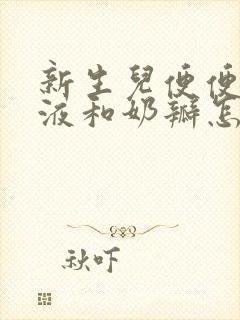 新生兒便便
液和奶瓣怎
秋吓